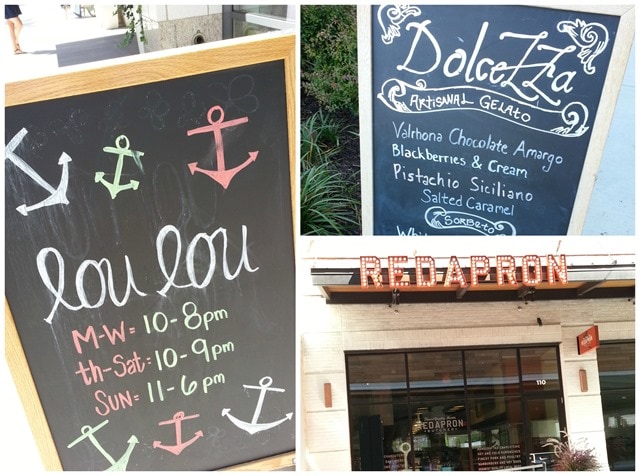 lou lou
M-W= 10-8pm
th-Sat: 10-9pm
Sun= 11-6pm
DolceZZa
ARTISANAL GELATO
Valrhona Chocolate Amargo
Blackberries & Cream
Pistachio Siciliano
Salted Caramel
SORBETO
RED APRON
110
RED APRON
BUTCHERY